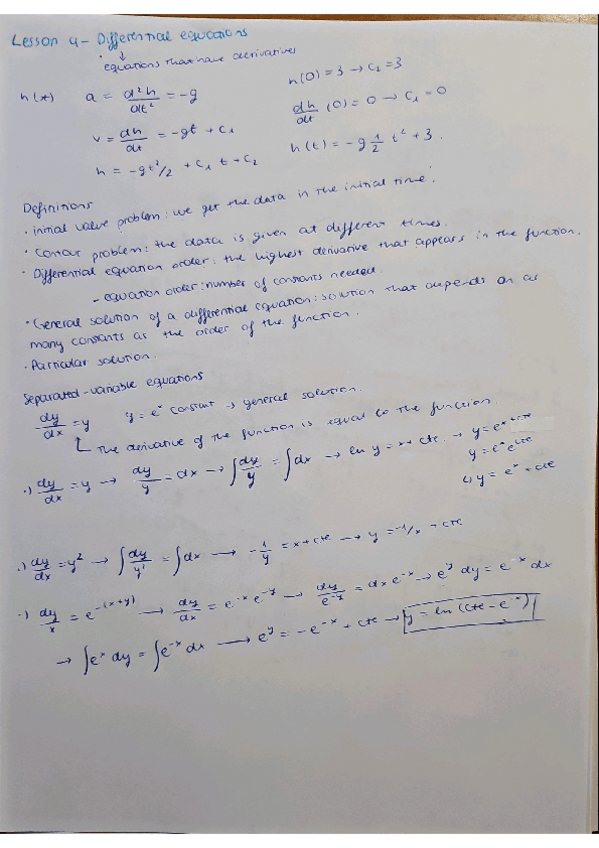 Lesson 4 - Differential equations
↓
equations that have derivatives
h(t)   a = d²h/dt² = -g   h(0) = 3 → C₂ = 3
v = dh/dt = -gt + C₁   dh/dt (0) = 0 → C₁ = 0
h = -gt²/2 + C₁ t + C₂   h(t) = -g 1/2 t² + 3.
Definitions
· initial value problem: we get the data in the initial time.
· Contour problem: the data is given at different times.
· Differential equation order: the highest derivative that appears in the function.
- equation order: number of constants needed.
· General solution of a differential equation: solution that depends on as
many constants as the order of the function.
· Particular solution.
Separated-variable equations
dy/dx = y   y = eˣ constant → general solution.
↳ The derivative of the function is equal to the function
·) dy/dx = y → dy/y = dx → ∫dy/y = ∫dx → ln y = x + cte → y = e^(x+cte)
y = eˣ e^cte
↳ y = eˣ + cte
·) dy/dx = y² → ∫dy/y² = ∫dx → -1/y = x + cte → y = -1/x + cte
·) dy/x = e^-(x+y) → dy/dx = e^-x e^-y → dy/e^-y = dx e^-x → e^y dy = e^-x dx
→ ∫eˣ dy = ∫e^-x dx → e^y = -e^-x + cte → y = ln (cte - e^-x)